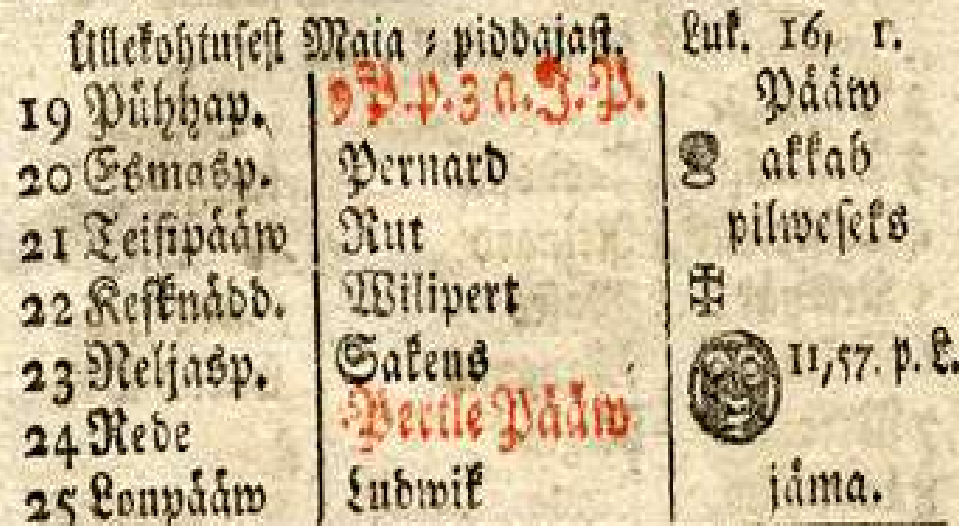 Üllekohtusest Maia : piddajast. Luk. 16, 1.
19 Pühhap. 9 P. p. 3 a. J. P. Pääw
20 Esmasp. Pernard akkab
21 Teisipääw Rut pilweseks
22 Kesknädd. Wilipert
23 Neljasp. Sakeus 11,57. p. L.
24 Rede Pertle Pääw
25 Loupääw Ludwik jäma.